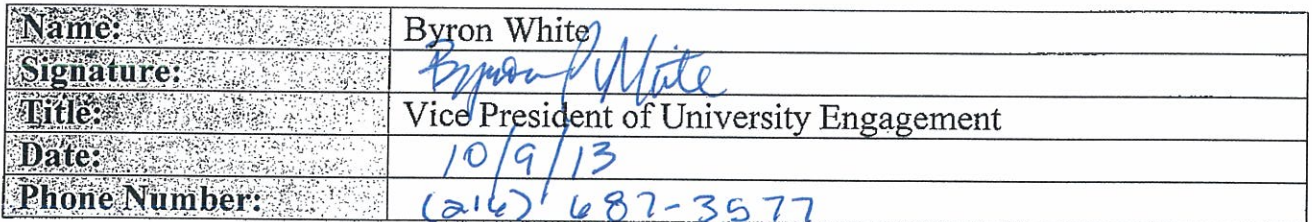 Name: Byron White
Signature: Byron P White
Title: Vice President of University Engagement
Date: 10/9/13
Phone Number: (216) 687-3577